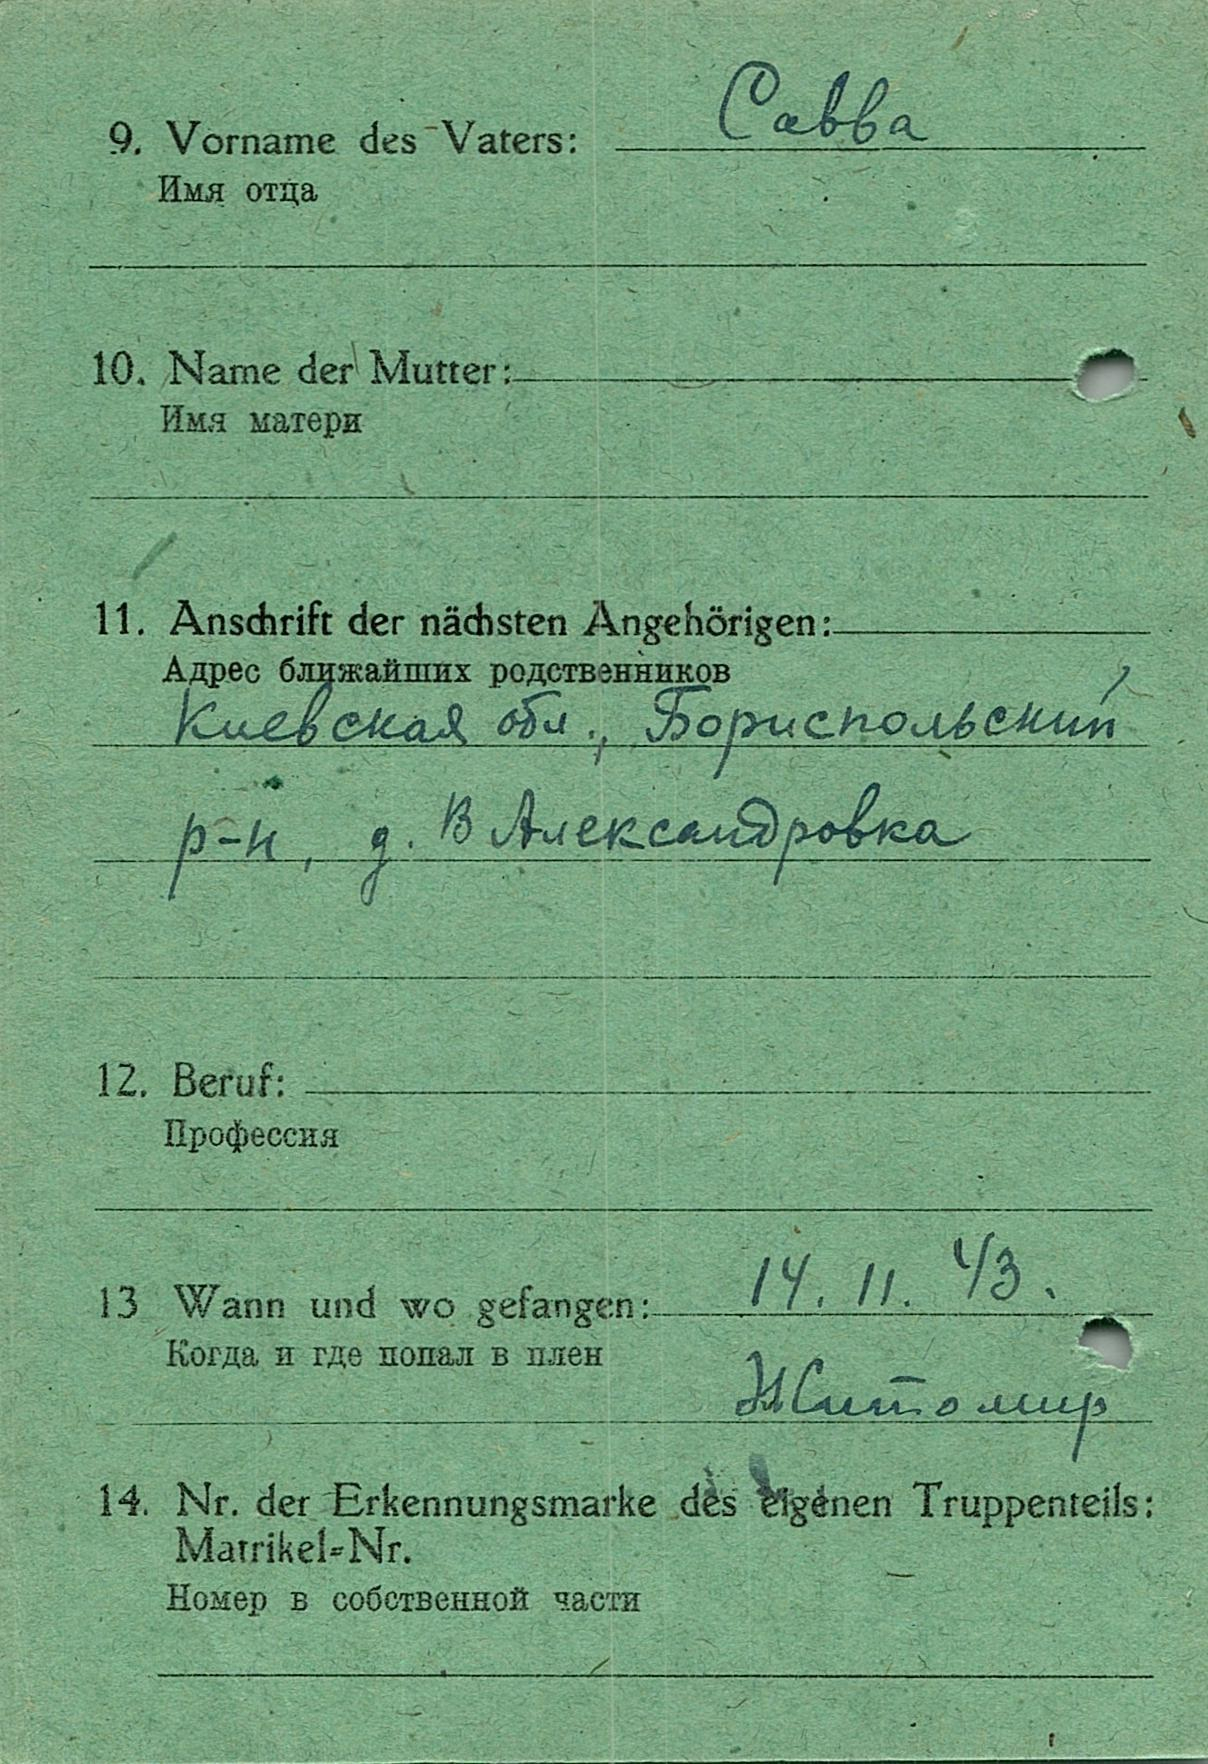 9. Vorname des Vaters: Савва
Имя отца
10. Name der Mutter:
Имя матери
11. Anschrift der nächsten Angehörigen:
Адрес ближайших родственников
Киевская обл., Бориспольский
р-н, д. В Александровка
12. Beruf:
Профессия
13 Wann und wo gefangen: 14. 11. 43.
Когда и где попал в плен
Житомир
14. Nr. der Erkennungsmarke des eigenen Truppenteils:
Matrikel-Nr.
Номер в собственной части